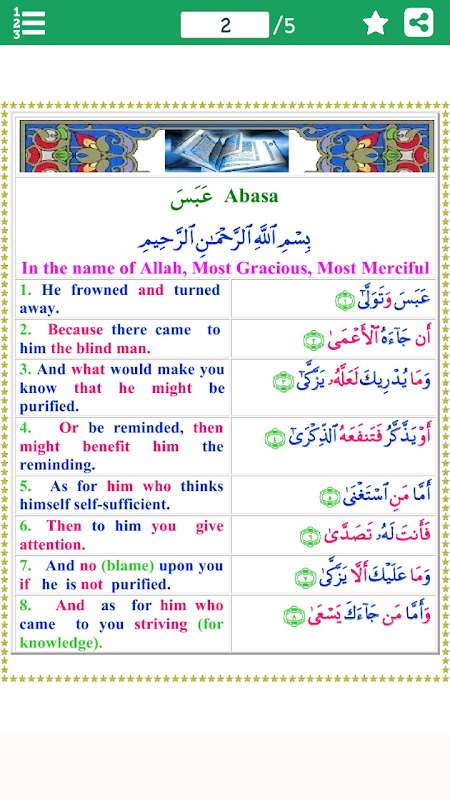 1
2
3
2 /5
عَبَسَ Abasa
بِسْمِ ٱللَّهِ ٱلرَّحْمَٰنِ ٱلرَّحِيمِ
In the name of Allah, Most Gracious, Most Merciful
1. He frowned and turned
away.
عَبَسَ وَتَوَلَّىٰٓ ١
2. Because there came to
him the blind man.
أَن جَآءَهُ ٱلْأَعْمَىٰ ٢
3. And what would make you
know that he might be
purified.
وَمَا يُدْرِيكَ لَعَلَّهُۥ يَزَّكَّىٰٓ ٣
4. Or be reminded, then
might benefit him the
reminding.
أَوْ يَذَّكَّرُ فَتَنفَعَهُ ٱلذِّكْرَىٰٓ ٤
5. As for him who thinks
himself self-sufficient.
أَمَّا مَنِ ٱسْتَغْنَىٰ ٥
6. Then to him you give
attention.
فَأَنتَ لَهُۥ تَصَدَّىٰ ٦
7. And no (blame) upon you
if he is not purified.
وَمَا عَلَيْكَ أَلَّا يَزَّكَّىٰ ٧
8. And as for him who
came to you striving (for
knowledge).
وَأَمَّا مَن جَآءَكَ يَسْعَىٰ ٨